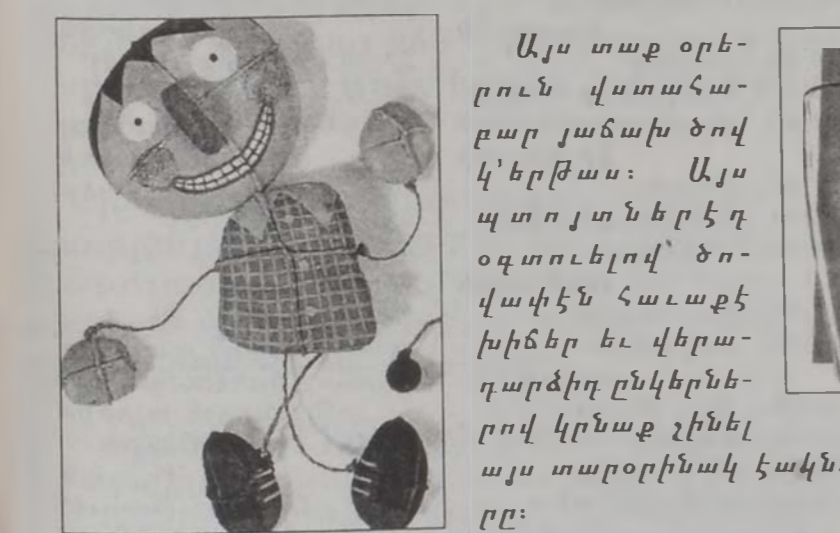 Այս տաք օրե-
րուն վստահա-
բար յաճախ ծով
կ'երթաս։ Այս
պտոյտներէդ
օգտուելով՝ ծո-
վափէն հաւաքէ
խիճեր եւ վերա-
դարձիդ ընկերնե-
րով կրնաք շինել
այս տարօրինակ էակնե
րը։